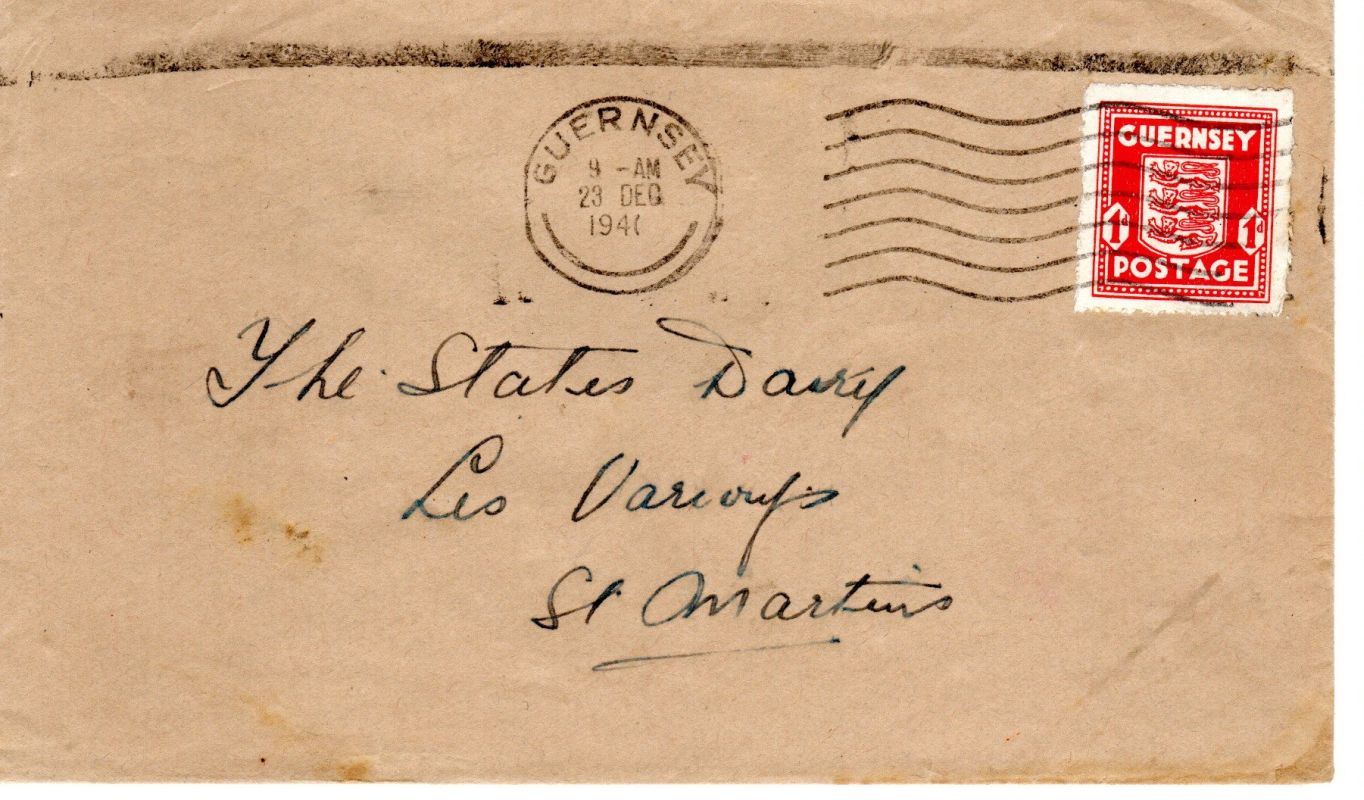 GUERNSEY
9 - AM
23 DEC
194
GUERNSEY
1d 1d
POSTAGE
The States Dairy
Les
St Martins